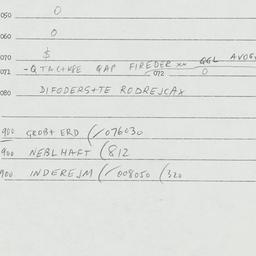 050 O
060 O
070 $
071 -QT&C+KGE GAP FIREDER xx GGL AVOG
072 O
080 DIFODERS+TE RODREJCAX
900 GROB+ ERD (/076030
900 NEBLHAFT (812
900 INDEREJM (/008050 (320